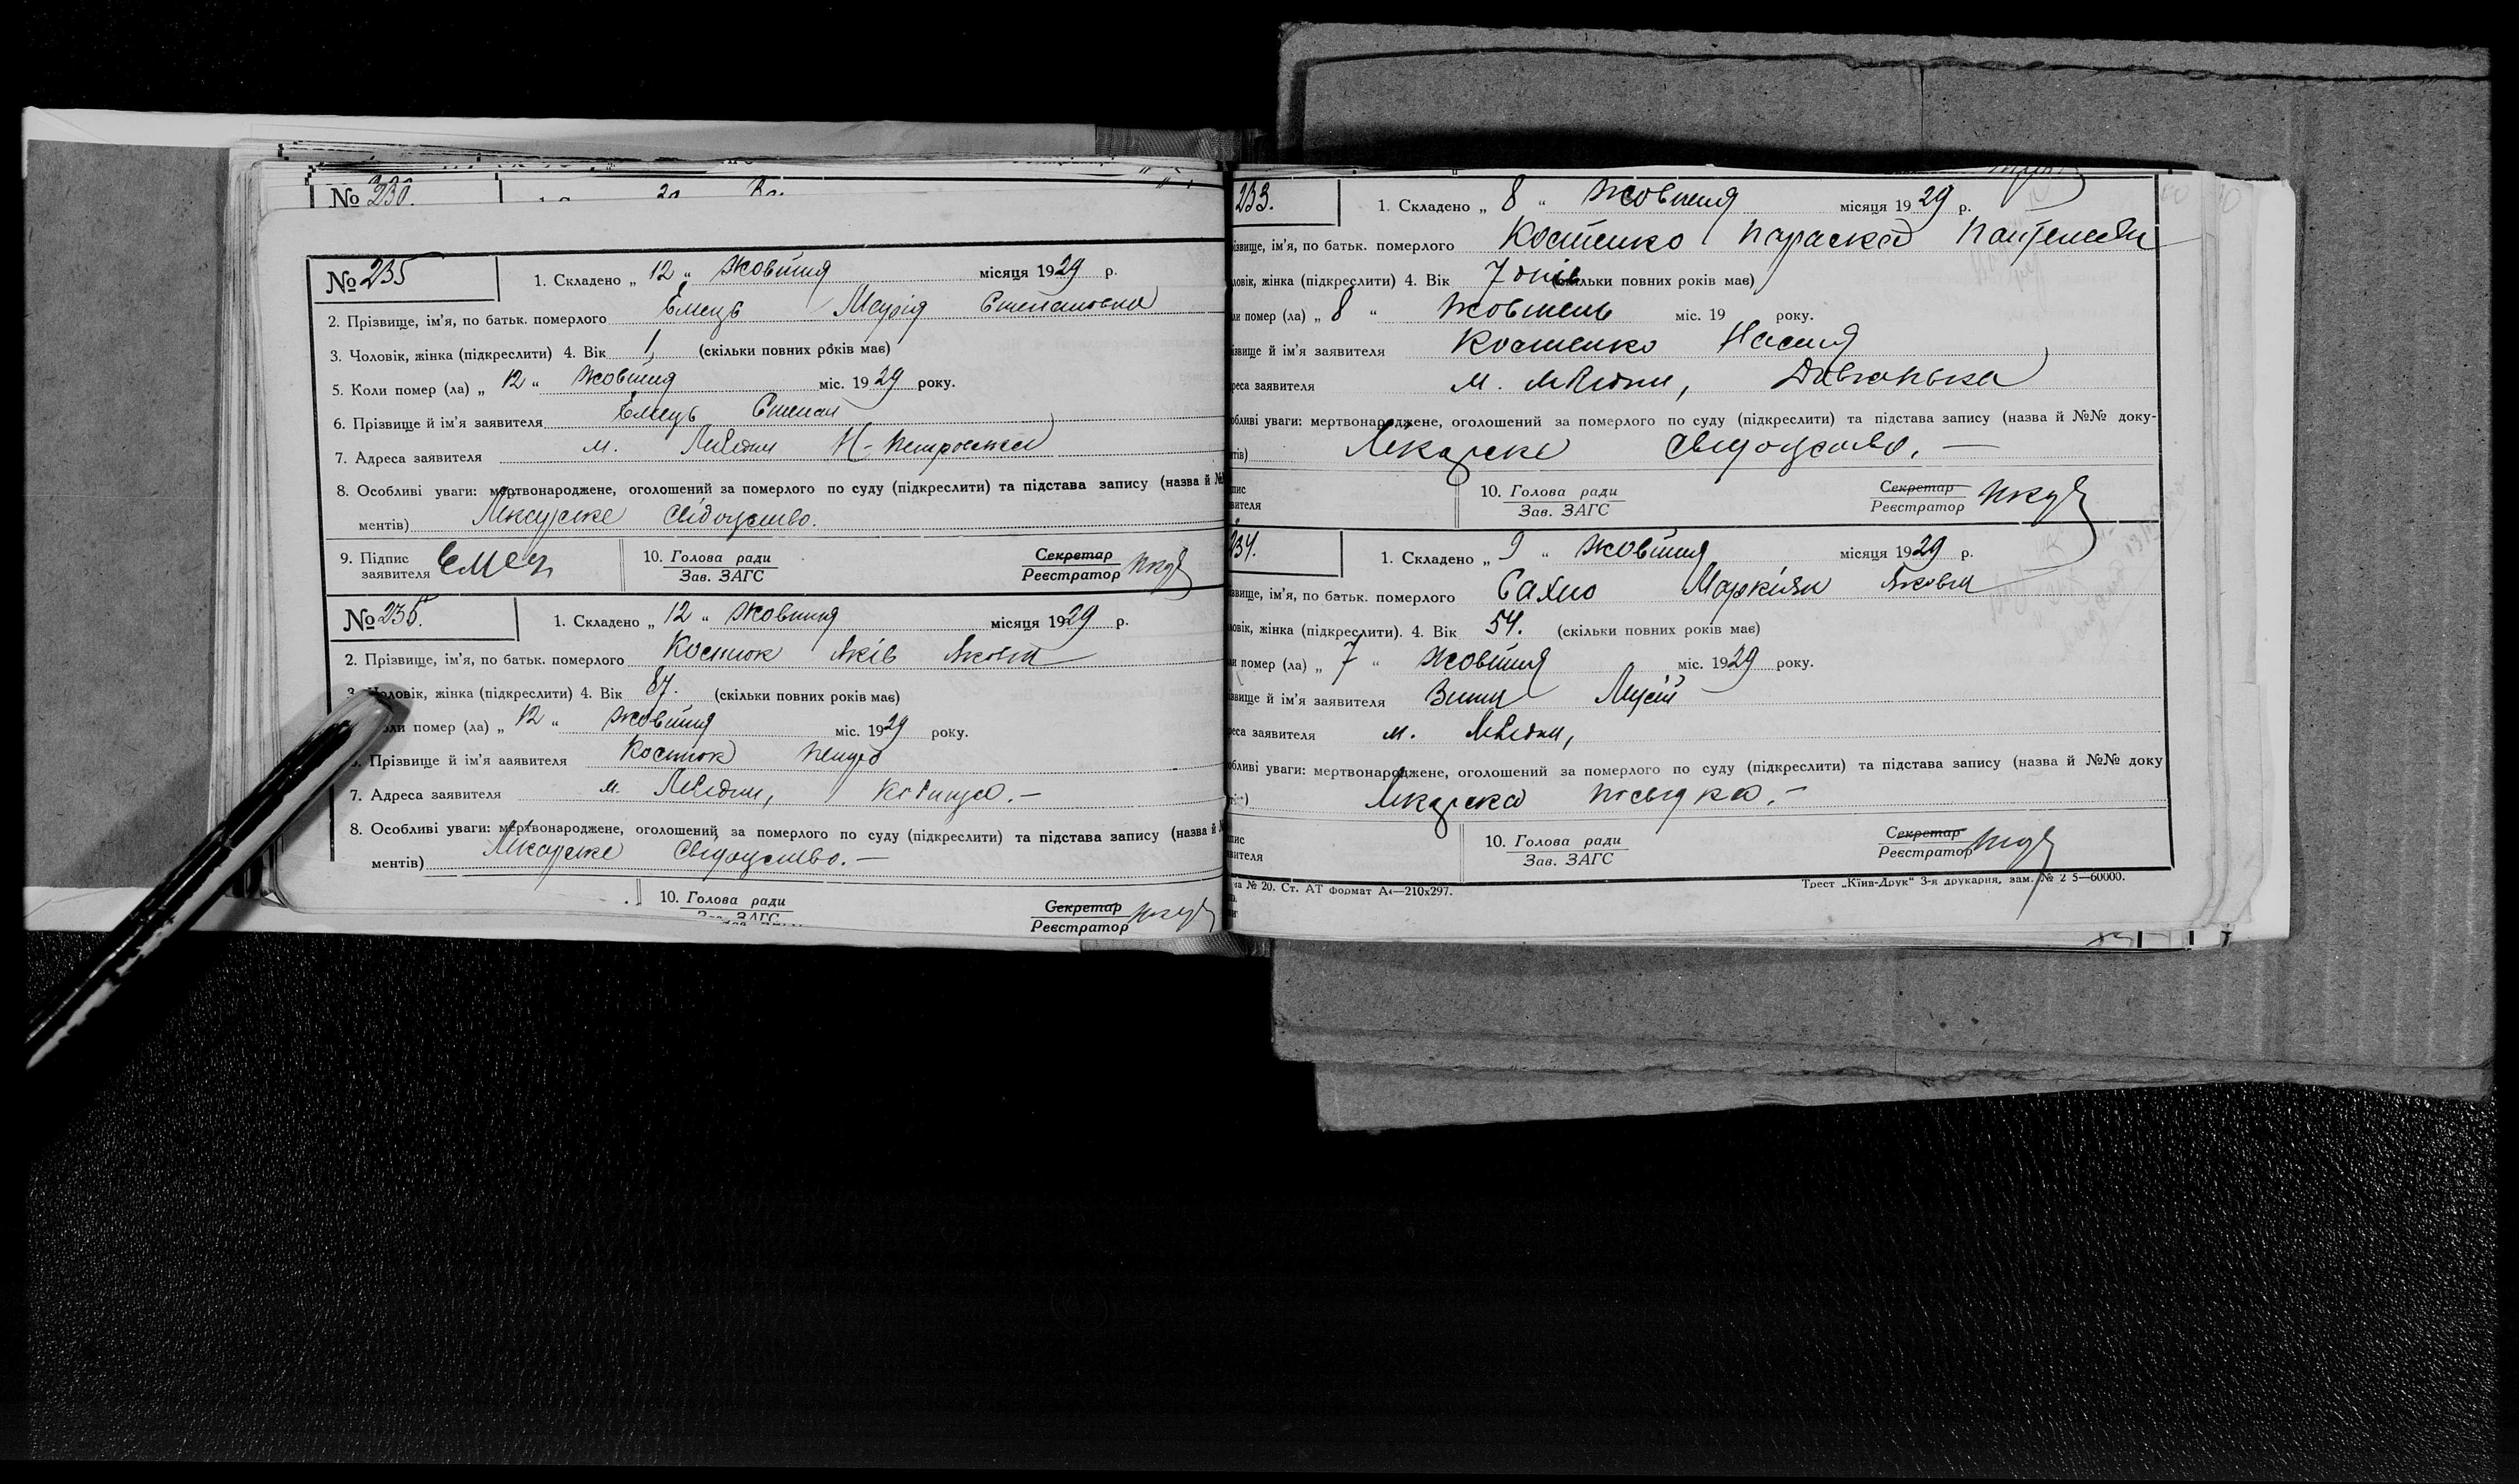 № 230.
№ 235
1. Складено „ 12 “ Жовтня місяця 1929 р.
2. Прізвище, ім'я, по батьк. померлого Ємець Марія Степановна
3. Чоловік, жінка (підкреслити) 4. Вік 1 (скільки повних років має)
5. Коли помер (ла) „ 12 “ Жовтня міс. 1929 року.
6. Прізвище й ім'я заявителя Ємець Степан
7. Адреса заявителя м. Н-Петровська
8. Особливі уваги: мертвонароджене, оголошений за померлого по суду (підкреслити) та підстава запису (назва й №
ментів) Лікарське свідоцтво.
9. Підпис заявителя Ємец
10. Голова ради
Зав. ЗАГС
Секретар
Реєстратор
№ 235.
1. Складено „ 12 “ Жовтня місяця 1929 р.
2. Прізвище, ім'я, по батьк. померлого Костюк Яків Яковл
3. Чоловік, жінка (підкреслити) 4. Вік 87. (скільки повних років має)
оли помер (ла) „ 12 “ Жовтня міс. 1929 року.
Прізвище й ім'я ааявителя Костюк
7. Адреса заявителя м.
8. Особливі уваги: мертвонароджене, оголошений за померлого по суду (підкреслити) та підстава запису (назва й №
ментів) Лікарське свідоцтво. —
10. Голова ради
Зав. ЗАГС
Секретар
Реєстратор
233.
1. Складено „ 8 “ Жовтня місяця 1929 р.
ізвище, ім'я, по батьк. померлого Костенко Параска
ловік, жінка (підкреслити) 4. Вік 7 днів (скільки повних років має)
ли помер (ла) „ 8 “ Жовтень міс. 19 року.
ізвище й ім'я заявителя Костенко Настя
реса заявителя м.
обливі уваги: мертвонароджене, оголошений за померлого по суду (підкреслити) та підстава запису (назва й №№ доку-
нтів) Лікарське свідоцтво. —
пис
явителя
10. Голова ради
Зав. ЗАГС
Секретар
Реєстратор
234.
1. Складено „ 9 “ Жовтня місяця 1929 р.
звище, ім'я, по батьк. померлого Сахно Маркіян Яковл
ловік, жінка (підкреслити). 4. Вік 54. (скільки повних років має)
ли помер (ла) „ 7 “ Жовтня міс. 1929 року.
ізвище й ім'я заявителя Мусій
реса заявителя м.
обливі уваги: мертвонароджене, оголошений за померлого по суду (підкреслити) та підстава запису (назва й №№ доку
Лікарска посвідка. —
пис
явителя
10. Голова ради
Зав. ЗАГС
Секретар
Реєстратор
№ 20. Ст. АТ формат А4—210х297.
Трест „Київ-Друк“ 3-я друкарня, зам. № 2 5—60000.